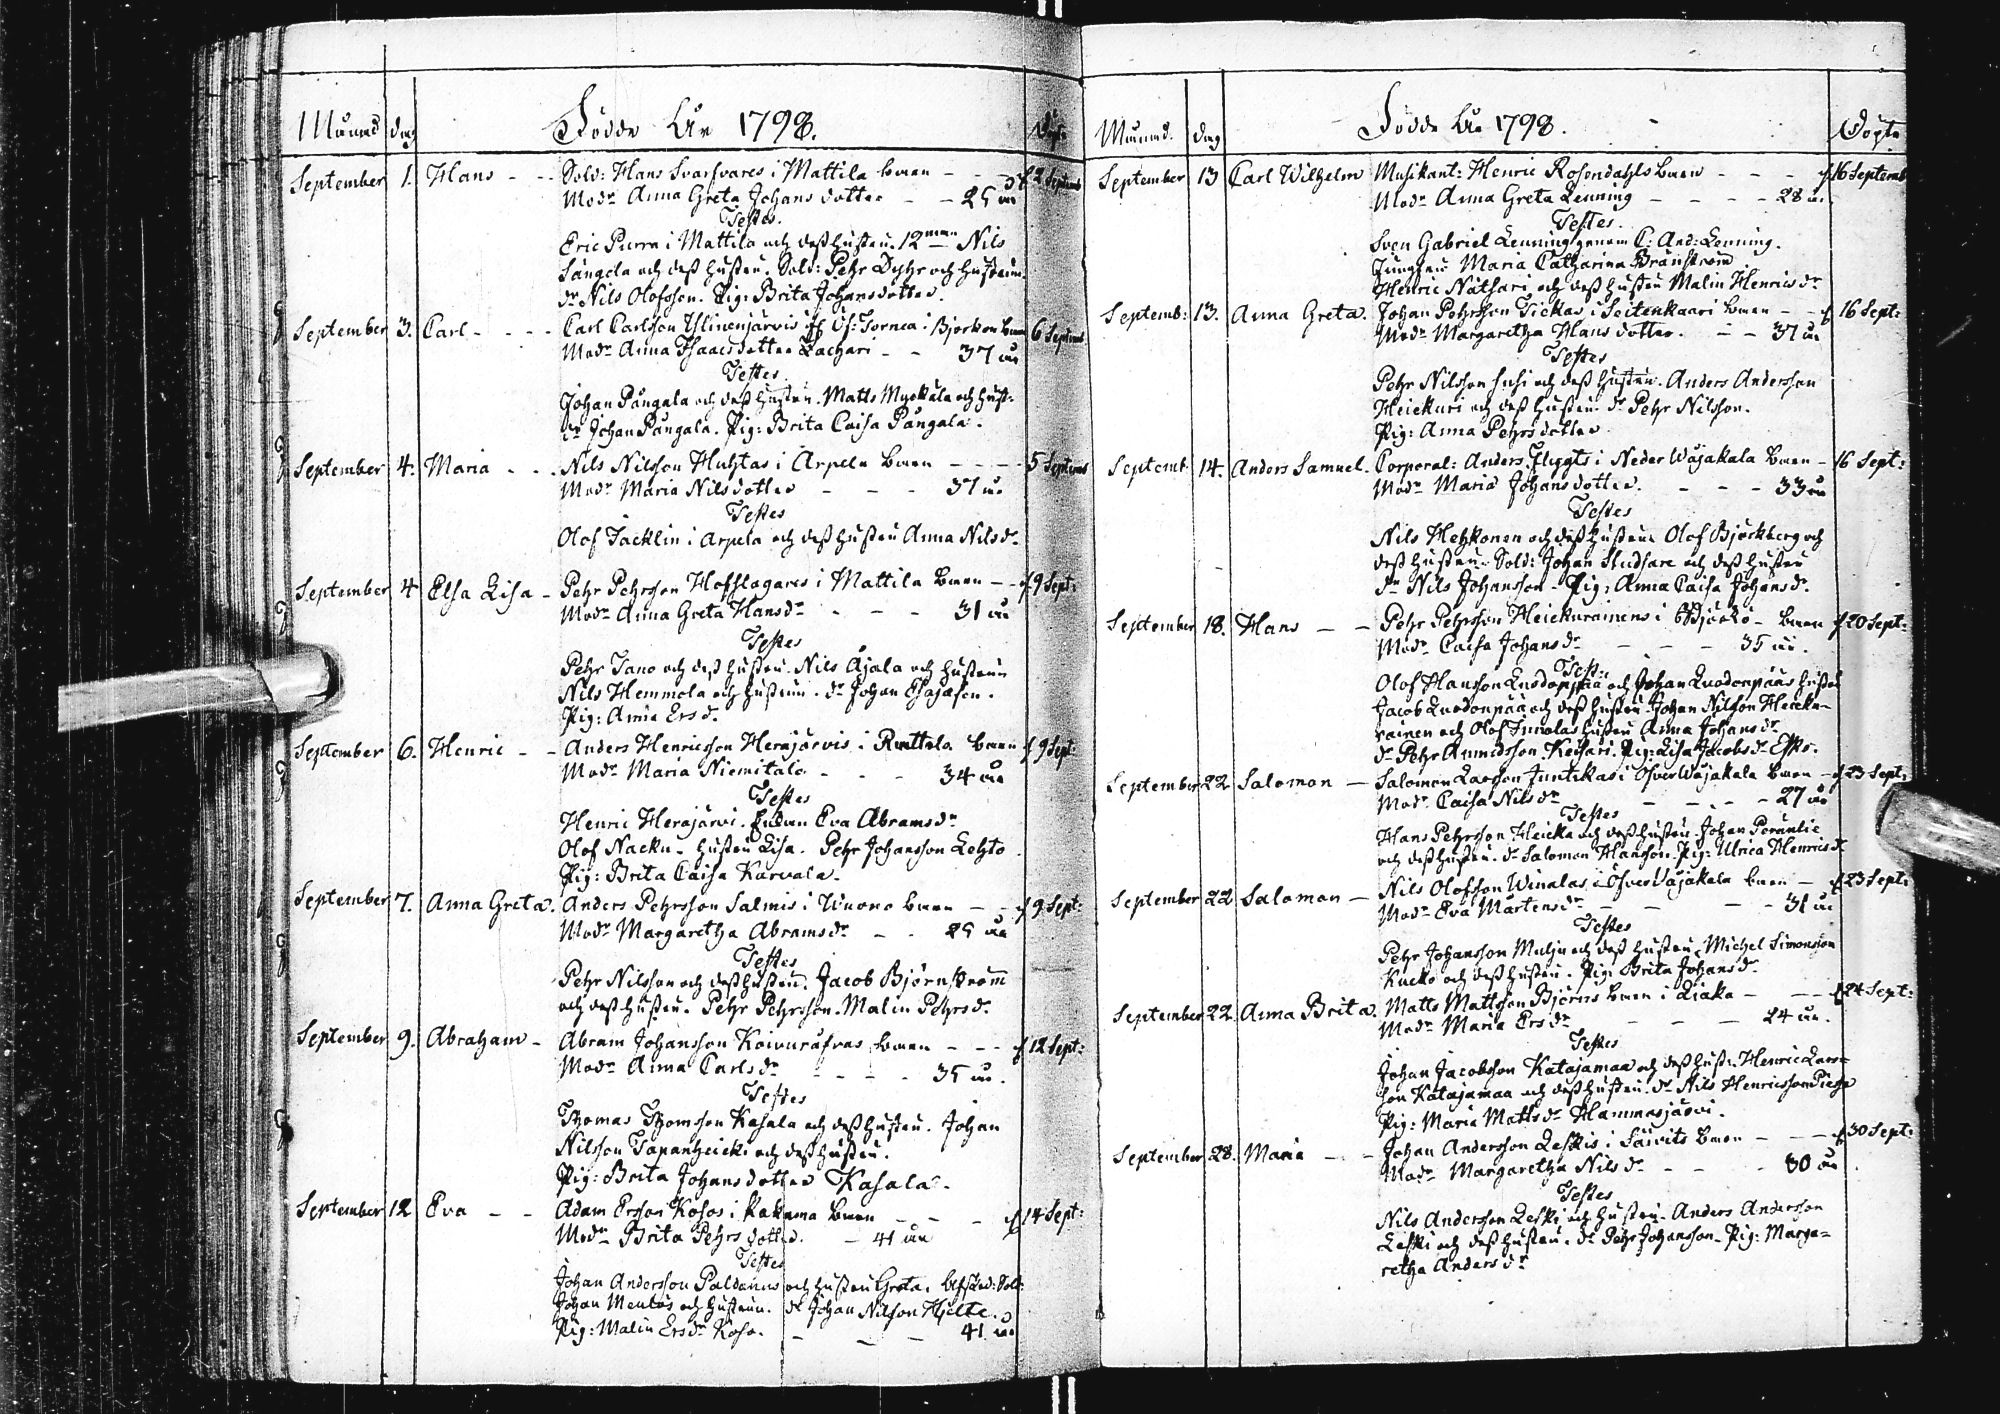 Månad dag Födde År 1798. Döpte
September 1. Hans - - Sold: Hans Svarfvares i Mattila barn - - 2 Septemb
Modr Anna Greta Johansdotter - - 25 år
Testes.
Eric Purra i Mattila och dess hustru. 12man Nils
Långela och dess hustru. Sold: Pehr Dyhr och hustrun.
dr Nils Olofsson. Pig: Brita Johansdotter.
September 3. Carl - - - Carl Carlsson Ylinenjärvis i Öf: Tornea i Björkön barn 6 Septemb
Modr Anna Isaacsdotter Zachari - - 37 år
Testes
Johan Pångala och dess hustru. Matts Myckala och hust:
dr Johan Pångala. Pig: Brita Caisa Pångala.
September 4. Maria - - - Nils Nilsson Huhtas i Arpela barn - - - 5 Septemb
Modr Maria Nilsdotter - - - 37 år
Testes
Olof Jacklin i Arpela och dess hustru Anna Nilsdr
September 4 Elsa Lisa - Pehr Pehrsson Hofslagares i Mattila barn - - 9 Sept:
Modr Anna Greta Hansdr - - - 31 år
Testes
Pehr Jano och dess hustru. Nils Äjala och hustrun
Nils Hemmola och hustrun. dr Johan Esajæson.
Pig: Anna Ersd.
September 6. Henric - - Anders Henricsson Herajärvis i Rauttala barn 9 Sept:
Modr Maria Niemitalo - - - 34 år
Testes
Henric Herajärvi. Enkan Eva Abramsdr
Olof Nacku - hustru Lisa. Pehr Johansson Lehto
Pig: Brita Caisa Karvala.
September 7. Anna Greta. Anders Pehrsson Salmis i Wuono barn - - 9 Sept:
Modr Margaretha Abramsdr - - 25 år
Testes
Pehr Nilsson och dess hustru. Jacob Björnström
och dess hustru. Pehr Pehrsson. Malin Pehrsd.
September 9. Abraham - Abram Johansson Koivurafvas barn - - - 12 Sept:
Modr Anna Carlsdr - - - - 35 år.
Testes
Thomas Thomsson Kasala och dess hustru. Johan
Nilsson Tapanheicki och dess hustru.
Pig: Brita Johansdotter Kasala.
September 12 Eva - - Adam Ersson Kosos i Kakama barn - - - 14 Sept:
Modr Brita Pehrsdotter. - 41 år
Testes
Johan Andersson Paldanus och hustru Greta. Afsked: Sold:
Johan Mentås och hustrun. dr Johan Nilsson Hjelte.
Pig: Malin Ersdr Koso. - - - 41 år
Månad. dag Födde År 1798. Döpte
September 13 Carl Wilhelm Musikant: Henric Rosendahls barn - - - 16 Septemb
Modr Anna Greta Lenning - - - - 28 år.
Testes.
Sven Gabriel Lenning genom C: And: Lenning.
Jungfru Maria Catharina Bränström
Henric Näthari och dess hustru Malin Henricsdr
Septemb: 13. Anna Greta. Johan Pehrsson Tickas i Seitenkaari barn - - 16 Sept:
Modr Margaretha Hansdotter. - - 37 år
Testes
Pehr Nilsson Susi och dess hustru. Anders Andersson
Heickuri och dess hustru. dr Pehr Nilsson.
Pig: Anna Pehrsdotter.
Septemb. 14. Anders Samuel. Corporal: Anders Flygts i Neder Wojakala barn - 16 Sept:
Modr Maria Johansdotter. - - - 33 år
Testes
Nils Hehkonen och dess hustru. Olof Björkberg och
dess hustru. Sold: Johan Studsare och dess hustru
dr Nils Johansson. Pig: Anna Caisa Johansd.
September 18. Hans - - Pehr Pehrsson Heickurainens i Björkö - barn 20 Sept:
Modr Caisa Johansdr - - - 35 år.
Test:
Olof Hansson Luodonpää och Johan Luodonpääs hustru
Jacob Luodonpää och dess hustru. Johan Nilsson Heicku-
rainen och Olof hustru Anna Johansdr
dr Pehr Anundsson Keisari. Pig: Lisa Jacobsdr Esko.
September 22 Salomon - Salomon Larsson Juntikas i Öfver Wojakala barn - 23 Sept:
Modr Caisa Nilsdr - - - - 27 år
Testes
Hans Pehrsson Heicka och dess hustru. Johan Porantie
och dess hustru. dr Salomon Hansson. Pig: Ulrica Henricsdr
September 22 Salomon - Nils Olofsson Winalas i Öfver Wojakala barn - 23 Sept:
Modr Eva Mårtensdr - - - - 31 år
Testes
Pehr Johansson Maliju och dess hustru. Michel Simonsson
Kucko och dess hustru. Pig: Brita Johansdr
September 22. Anna Brita. Matts Mattsson Björns barn i Liaka - - - 24 Sept:
Modr Maria Ersdr - - - 24 år.
Testes
Johan Jacobsson Katajamaa och dess hust: Henric Lars-
son Katajamaa och dess hustru. dr Nils Henricsson
Pig: Maria Mattsdr Hammasjärvi.
September 28. Maria - - Johan Andersson Leskis i Säivits barn - - - 30 Sept:
Modr Margaretha Nilsdr - - - 30 år
Testes
Nils Andersson Leski och hustru. Anders Andersson
Leski och dess hustru. dr Pehr Johansson. Pig: Marga-
retha Andersdr